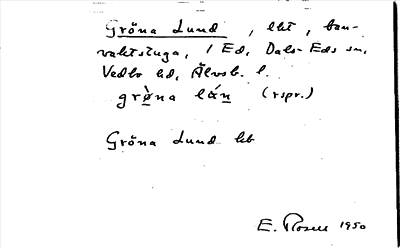 Gröna Lund, lht, ban-
vaktstuga, i Ed, Dals-Eds sn,
Vedbo hd, Älvsb. l.
grø̀na lán (rspr.)
Gröna Lund hb
E. Rosell 1950